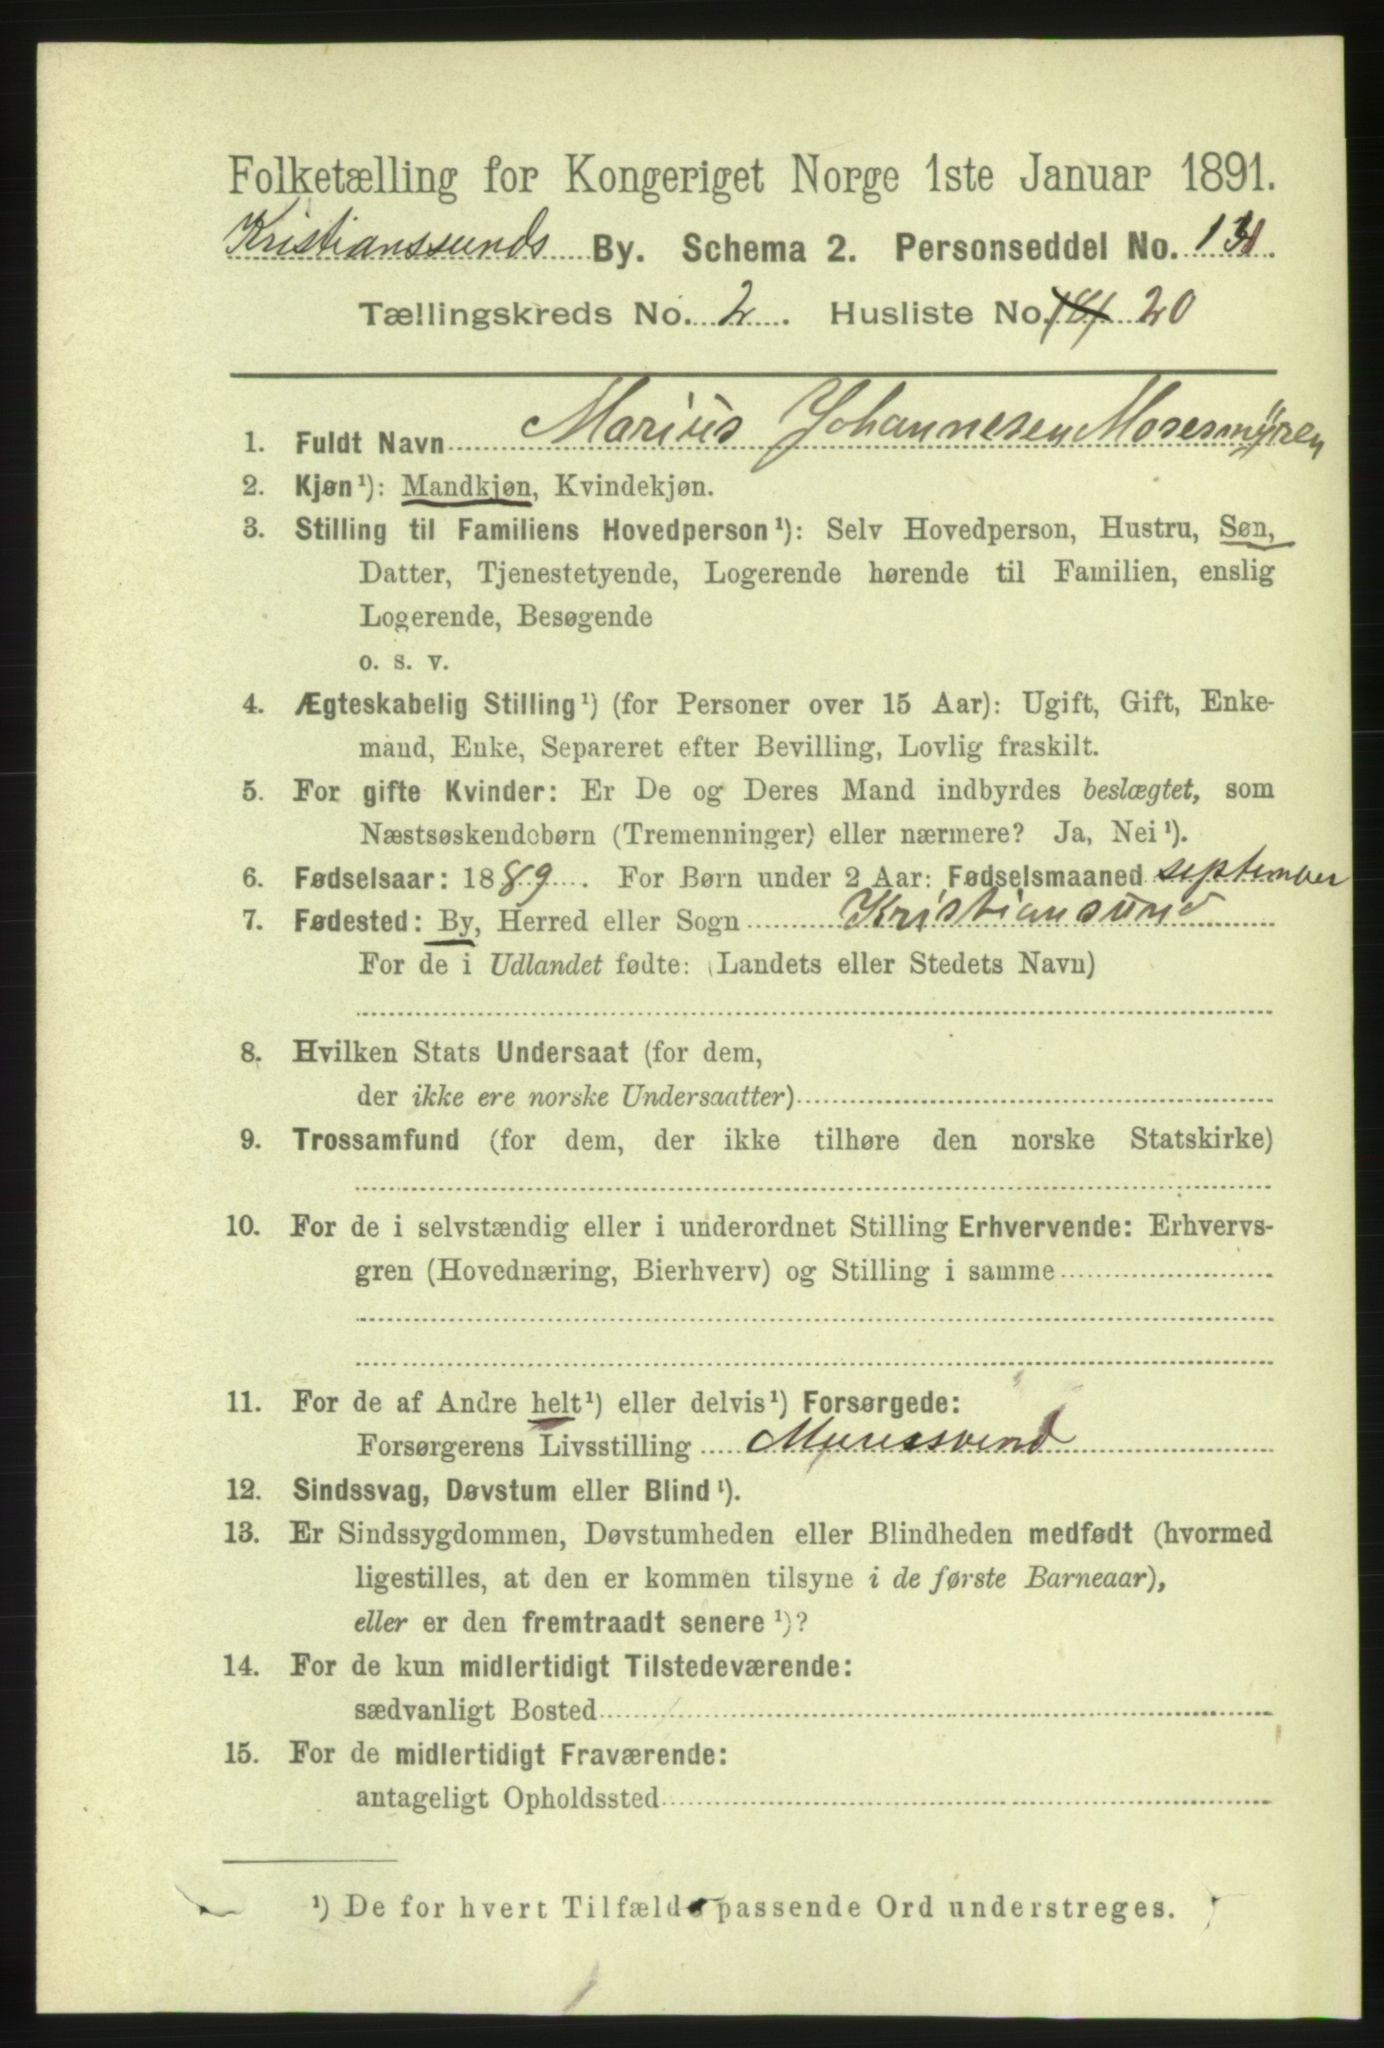 Folketælling for Kongeriget Norge 1ste Januar 1891.
Kristianssunds By. Schema 2. Personseddel No.
Tællingskreds No. 2. Husliste No. 181 20
1. Fuldt Navn Marius Johannesen Mosesmyren
2. Kjøn¹): Mandkjøn, Kvindekjøn.
3. Stilling til Familiens Hovedperson¹): Selv Hovedperson, Hustru, Søn,
Datter, Tjenestetyende, Logerende hørende til Familien, enslig
Logerende, Besøgende
o. s. v.
4. Ægteskabelig Stilling¹) (for Personer over 15 Aar): Ugift, Gift, Enke-
mand, Enke, Separeret efter Bevilling, Lovlig fraskilt.
5. For gifte Kvinder: Er De og Deres Mand indbyrdes beslægtet, som
Næstsøskendebørn (Tremenninger) eller nærmere? Ja, Nei¹).
6. Fødselsaar: 1889. For Børn under 2 Aar: Fødselsmaaned september
7. Fødested: By, Herred eller Sogn Kristiansund
For de i Udlandet fødte: (Landets eller Stedets Navn)
8. Hvilken Stats Undersaat (for dem,
der ikke ere norske Undersaatter)
9. Trossamfund (for dem, der ikke tilhøre den norske Statskirke)
10. For de i selvstændig eller i underordnet Stilling Erhvervende: Erhvervs-
gren (Hovednæring, Bierhverv) og Stilling i samme
11. For de af Andre helt¹) eller delvis¹) Forsørgede:
Forsørgerens Livsstilling Muressvend
12. Sindssvag, Døvstum eller Blind¹).
13. Er Sindssygdommen, Døvstumheden eller Blindheden medfødt (hvormed
ligestilles, at den er kommen tilsyne i de første Barneaar),
eller er den fremtraadt senere¹)?
14. For de kun midlertidigt Tilstedeværende:
sædvanligt Bosted
15. For de midlertidigt Fraværende:
antageligt Opholdssted
¹) De for hvert Tilfælde passende Ord understreges.